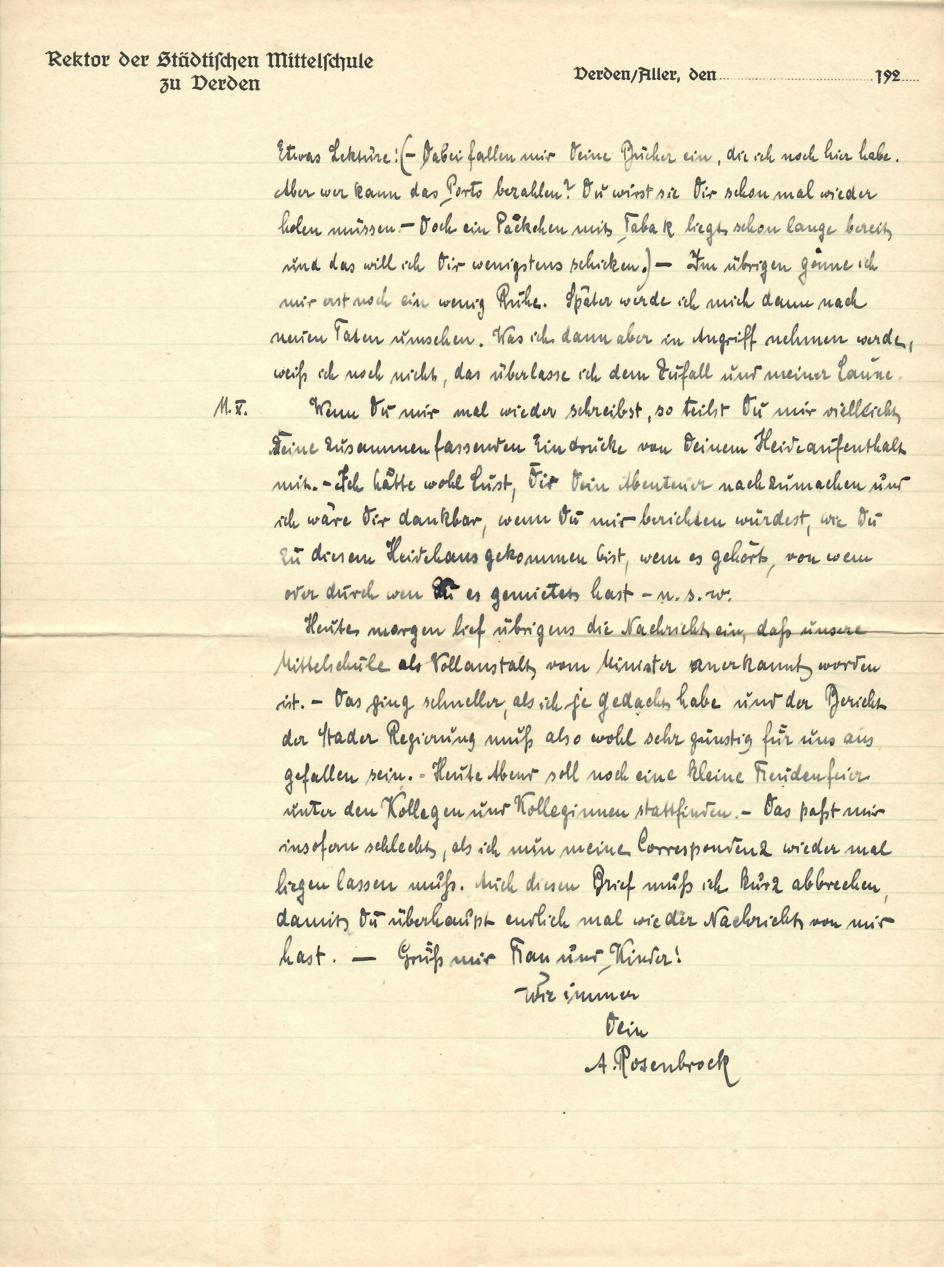 Rektor der Städtischen Mittelschule
zu Verden
Verden/Aller, den 192
Etwas Lektüre! (– Dabei fallen mir Deine Bücher ein, die ich noch hier habe.
Aber wer kann das Porto bezahlen? Du wirst sie Dir schon mal wieder
holen müssen. – Doch ein Päckchen mit Tabak liegt schon lange bereit,
und das will ich Dir wenigstens schicken.) – Im übrigen gönne ich
mir erst noch ein wenig Ruhe. Später werde ich mich dann nach
neuen Taten umsehen. Was ich dann aber in Angriff nehmen werde,
weiß ich noch nicht, das überlasse ich dem Zufall und meiner Laune.
Wenn Du mir mal wieder schreibst, so teilst Du mir vielleicht
Deine zusammenfassenden Eindrücke von Deinem Heideaufenthalt
mit. – Ich hätte wohl Lust, Dir Dein Abenteuer nachzumachen und
ich wäre Dir dankbar, wenn Du mir berichten würdest, wie Du
zu diesem Heidehaus gekommen bist, wem es gehört, von wem
oder durch wen Du es gemietet hast – u. s. w.
Heute morgen lief übrigens die Nachricht ein, daß unsere
Mittelschule als Vollanstalt vom Minister anerkannt worden
ist. – Das ging schneller, als ich je gedacht habe und der Bericht
der Stader Regierung muß also wohl sehr günstig für uns aus
gefallen sein. – Heute Abend soll noch eine kleine Freudenfeier
unter den Kollegen und Kolleginnen stattfinden. – Das paßt mir
insofern schlecht, als ich nun meine Correspondenz wieder mal
liegen lassen muß. Auch diesen Brief muß ich kurz abbrechen,
damit Du überhaupt endlich mal wieder Nachricht von mir
hast. — Grüß mir Frau und Kinder!
Wie immer
Dein
A. Rosenbrock